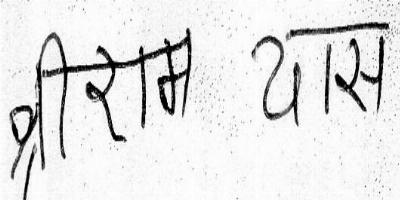 श्रीराम यास